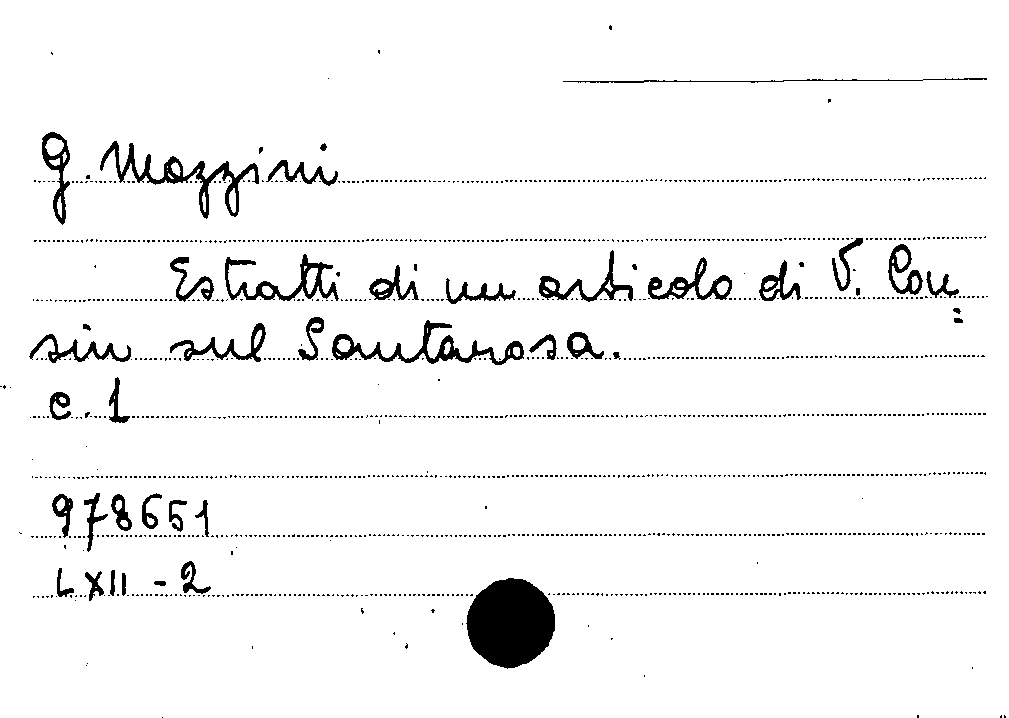 G. Mazzini
Estratti di un articolo di V. Cou=
sin sul Santarosa.
c. 1
978651
LXII - 2